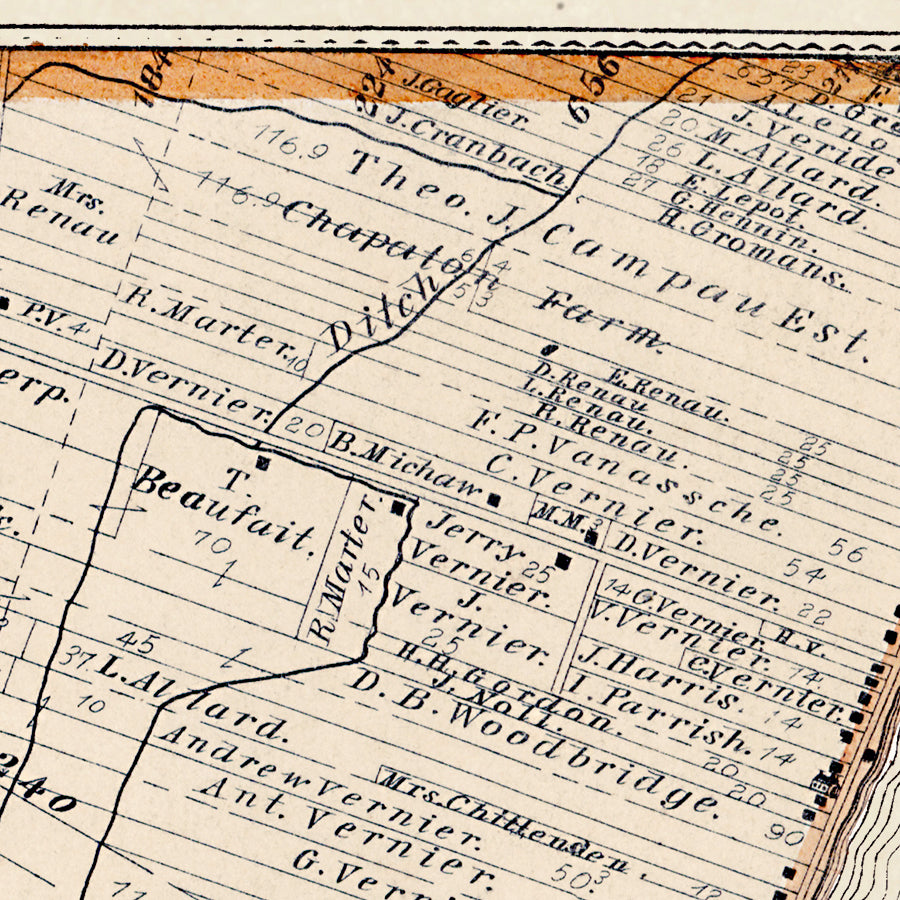 184
224
J. Gaglier.
J. Cranbach.
656
657
23
21
A. Leno
J. Veride
20 M. Allard.
26 L. Allard.
18 E. Lepot.
27 G. Hennin.
H. Gromans.
116.9
Theo. J. Campau Est.
116.9
Chapaton
Farm.
Mrs.
Renau
P.V. 4
R. Marter. 10
Ditch
D. Vernier. 20
erp.
B. Michaw
E. Renau.
D. Renau
L. Renau.
R. Renau.
25
F. P. Vanassche.
56
C. Vernier.
54
M.M. 3
D. Vernier.
22
T.
Beaufait.
70
R. Marter.
15
Jerry
Vernier.
25
J.
Vernier.
25
14 G. Vernier.
H.V.
V. Vernier.
14
C. Vernier.
J. Harris.
14
I. Parrish.
14
H.H. Gordon.
20
J. Noll.
20
D. B. Woodbridge.
90
45
37 L. Allard.
10
240
Andrew Vernier.
Mrs. Chittenden.
3
12
Ant. Vernier.
50
G. Verni
11